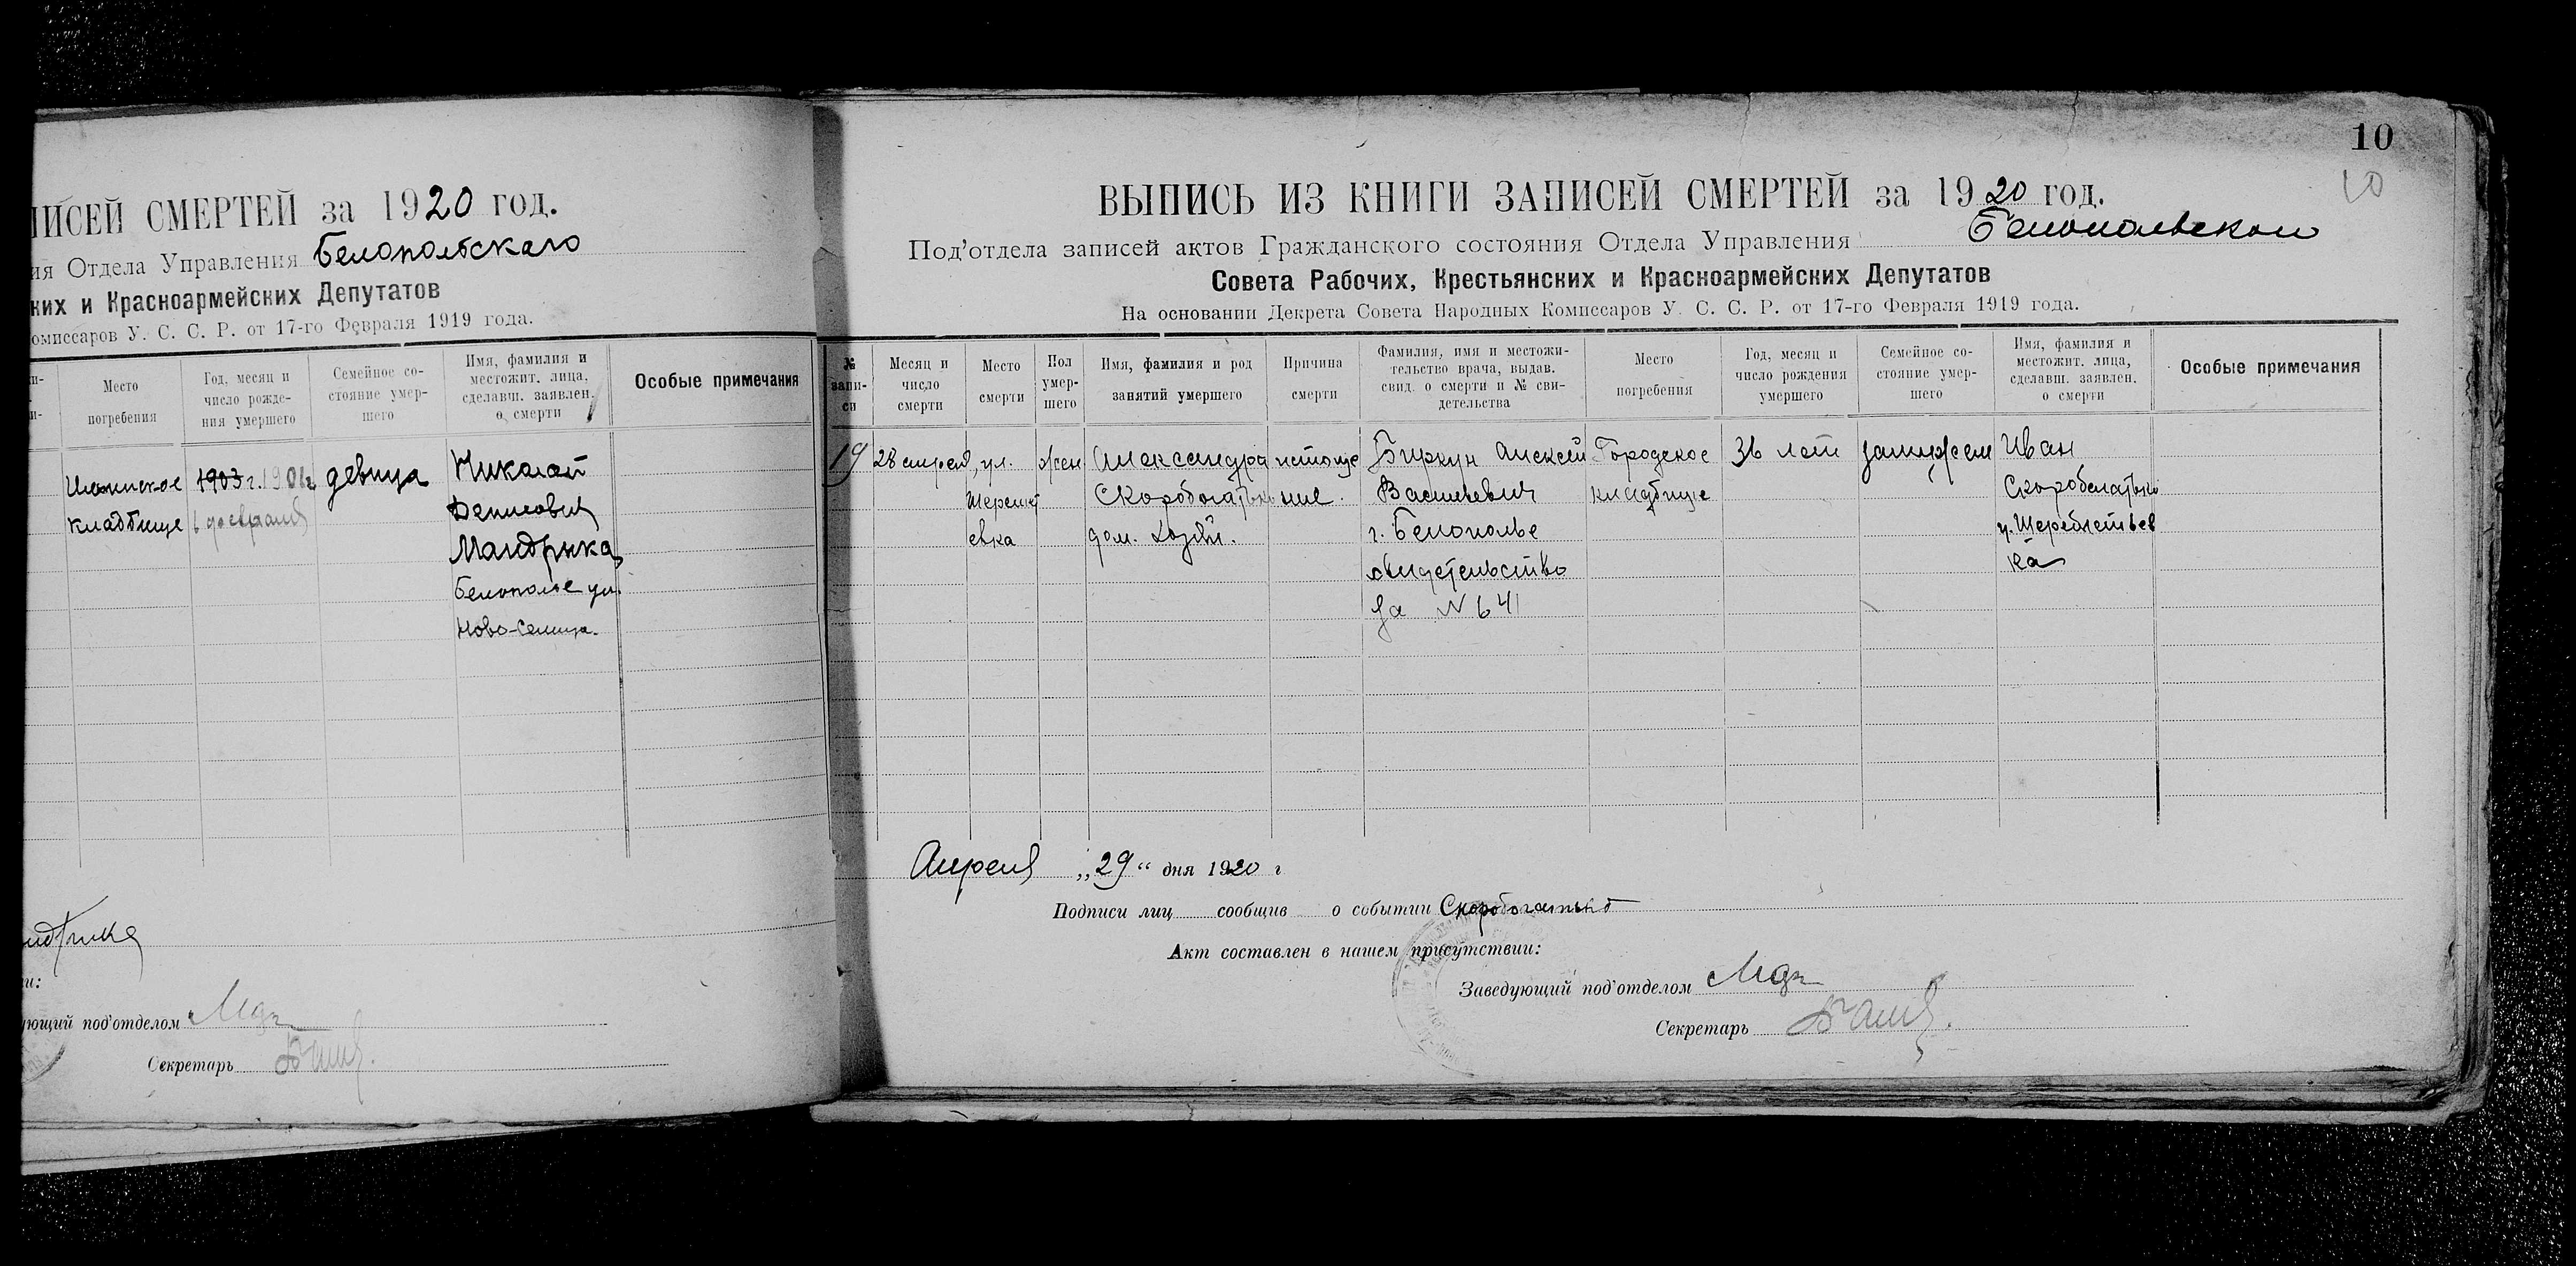 ПИСЕЙ СМЕРТЕЙ за 1920 год.
ия Отдела Управления Белопольскаго
ких и Красноармейских Депутатов
омиссаров У. С. С. Р. от 17-го Февраля 1919 года.
Место погребения
Год, месяц и число рожде-ния умершего
Семейное со-стояние умер-шего
Имя, фамилия и местожит. лица, сделавш. заявлен. о смерти
Особые примечания
кладбище
1903 г. 1901 г.
6 февраля
девица
Николай
Денисович
Мандрыка
Белополье ул.
Ново-селица.
ующий под'отделом
Секретарь
10
10
ВЫПИСЬ ИЗ КНИГИ ЗАПИСЕЙ СМЕРТЕЙ за 1920 год.
Под'отдела записей актов Гражданского состояния Отдела Управления Белопольского
Совета Рабочих, Крестьянских и Красноармейских Депутатов
На основании Декрета Совета Народных Комиссаров У. С. С. Р. от 17-го Февраля 1919 года.
№ запи-си
Месяц и число смерти
Место смерти
Пол умер-шего
Имя, фамилия и род занятий умершего
Причина смерти
Фамилия, имя и местожи-тельство врача, выдав. свид. о смерти и № сви-детельства
Место погребения
Год, месяц и число рождения умершего
Семейное со-стояние умер-шего
Имя, фамилия и местожит. лица, сделавш. заявлен. о смерти
Особые примечания
19
28 апреля
ул.
евка
жен
Александра
Скоробогатько
дом. хозяй.
истоще
ние.
Биркун Алексей
Васильевич
г. Белополье
свидетельство
за N 641
Городское
кладбище
36 лет
замужем
Иван
Скоробогатько
ка
Апреля „29“ дня 1920 г
Подписи лиц сообщив о событии Скоробогатько
Акт составлен в нашем присутствии:
Заведующий под'отделом
Секретарь